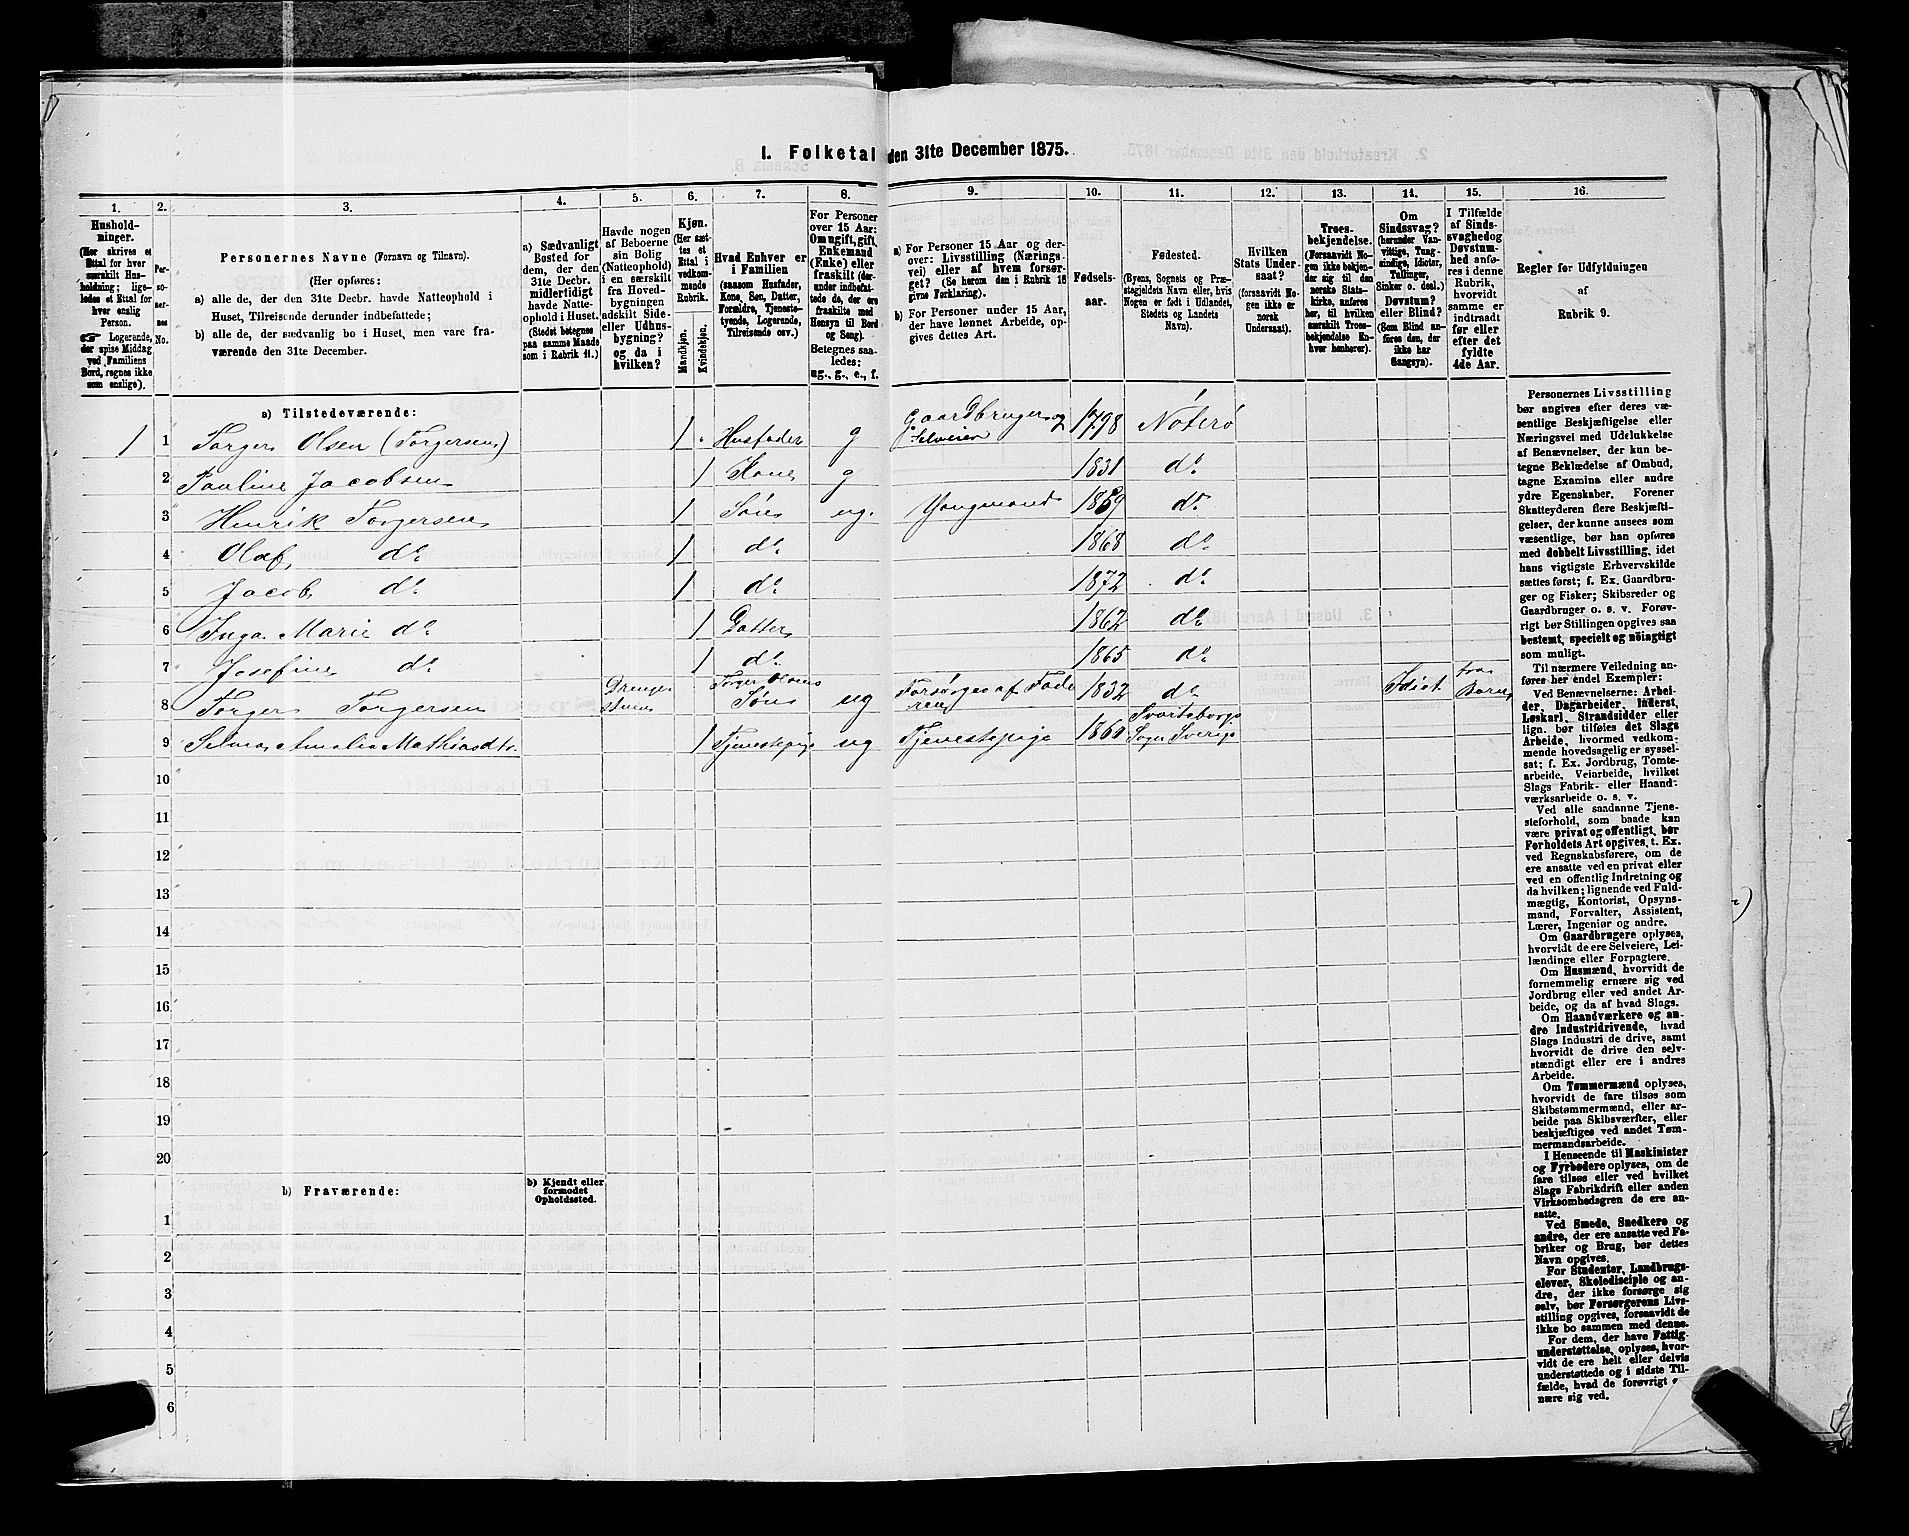 I. Folketal den 31te December 1875.
1. 2. 3. 4. 5. 6. 7. 8. 9. 10. 11. 12. 13. 14. 15. 16.
Hushold-
ninger.
(Her skrives et
Ettal for hver
særskilt Hus-
holdning; lige-
ledes et Ettal for
hver enslig
Person.
Logerende,
der spise Middag
ved Familiens
Bord, regnes ikke
som enslige).
Per-
so-
ner-
nes
No.
Personernes Navne (Fornavn og Tilnavn).
(Her opføres:
a) alle de, der den 31te Decbr. havde Natteophold i
Huset, Tilreisende derunder indbefattede;
b) alle de, der sædvanlig bo i Huset, men vare fra-
værende den 31te December.
a) Sædvanligt
Bosted for
dem, der den
31te Decbr.
midlertidigt
havde Natte-
ophold i Huset.
(Stedet betegnes
paa samme Maade
som i Rubrik 11.)
Havde nogen
af Beboerne
sin Bolig
(Natteophold)
i en særskilt
fra Hoved-
bygningen
adskilt Side-
eller Udhus-
bygning?
og da i
hvilken?
Kjøn.
(Her sæt-
tes et
Ettal i
vedkom-
mende
Rubrik.
Mandkjøn.
Kvindekjøn.
Hvad Enhver er
i Familien
(saasom Husfader,
Kone, Søn, Datter,
Forældre, Tjeneste-
tyende, Logerende,
Tilreisende osv.)
For Personer
over 15 Aar:
Om ugift, gift,
Enkemand
(Enke) eller
fraskilt (der-
under indbefat-
tede de, der ere
fraskilte med
Hensyn til Bord
og Seng).
Betegnes saa-
ledes:
ug., g., e., f.
a) For Personer 15 Aar og der-
over: Livsstilling (Nærings-
vei) eller af hvem forsør-
get? (Se herom den i Rubrik 16
givne Forklaring).
b) For Personer under 15 Aar,
der have lønnet Arbeide, op-
gives dettes Art.
Fødsels-
aar.
Fødested.
(Byens, Sognets og Præ-
stegjeldets Navn eller, hvis
Nogen er født i Udlandet,
Stedets og Landets
Navn).
Hvilken
Stats Under-
saat?
(forsaavidt No-
gen ikke er
norsk
Undersaat).
Troes-
bekjendelse.
(Forsaavidt No-
gen ikke bekjen-
der sig til den
norske Stats-
kirke, anføres
her, til hvilken
særskilt Troes-
bekjendelse En-
hver henhører).
Om
Sindssvag?
(herunder Van-
vittige, Tung-
sindige, Idioter,
Tullinger,
Sinker o. desl.)
Døvstum?
eller Blind?
(Som Blind an-
føres den, der
ikke har
Gangsyn).
I Tilfælde
af Sinds-
svaghed og
Døvstum-
hed anfø-
res i denne
Rubrik,
hvorvidt
samme er
indtraadt
før eller
efter det
fyldte
4de Aar.
Regler for Udfyldningen
af
Rubrik 9.
a) Tilstedeværende:
1 1 Torger Olsen (Torgersen) 1 Husfader g Gaardbruger og Selveier 1798 Nøterø
2 Pauline Jacobsen 1 Kone g 1831 do
3 Henrik Torgersen 1 Søn ug. Yongmand 1859 do
4 Olaf do 1 do 1868 do
5 Jacob do 1 do 1872 do
6 Inga Marie do 1 Datter 1862 do
7 Josefine do 1 do 1865 do
8 Torger Torgersen Drenge stuen Torger Olsens Søn ug Forsørges af Faderen 1832 do Idiot fra Barn
9 Selma Amalia Mathiasdtr. 1 Tjenestepige ug Tjenestepige 1860 Svarteborgs Sogn Sverige
10
11
12
13
14
15
16
17
18
19
20
b) Fraværende:
b) Kjendt eller
formodet
Opholdssted.
1
2
3
4
5
6
Personernes Livsstilling
bør angives efter deres væ-
sentlige Beskjæftigelse eller
Næringsvei med Udelukkelse
af Benævnelser, der kun be-
tegne Beklædelse af Ombud,
tagne Examina eller andre
ydre Egenskaber. Forener
Skatteyderen flere Beskjæfti-
gelser, der kunne ansees som
væsentlige, bør han opføres
med dobbelt Livsstilling, idet
hans vigtigste Erhvervskilde
sættes først; f. Ex. Gaardbru-
ger og Fisker; Skibsreder og
Gaardbruger o. s. v. Forøv-
rigt bør Stillingen opgives saa
bestemt, specielt og nöiagtigt
som muligt.
Til nærmere Veiledning an-
føres her endel Exempler:
Ved Benævnelserne: Arbei-
der, Dagarbeider, Inderst,
Løskarl, Strandsidder eller
lign. bør tilføies det Slags
Arbeide, hvormed vedkom-
mende hovedsagelig er syssel-
sat; f. Ex. Jordbrug, Tomte-
arbeide, Veiarbeide, hvilket
Slags Fabrik- eller Haand-
værksarbeide o. s. v.
Ved alle saadanne Tjene-
steforhold, som baade kan
være privat og offentligt, bør
Forholdets Art opgives, t. Ex.
ved Regnskabsførere, om de
ere ansatte ved en privat eller
ved en offentlig Indretning og
da hvilken; lignende ved Fuld-
mægtig, Kontorist, Opsyns-
mand, Forvalter, Assistent,
Lærer, Ingeniør og andre.
Om Gaardbrugere oplyses,
hvorvidt de ere Selveiere, Lei-
lændinge eller Forpagtere.
Om Husmænd, hvorvidt de
fornemmelig ernære sig ved
Jordbrug eller ved andet Ar-
beide, og da af hvad Slags.
Om Haandværkere og an-
dre Industridrivende, hvad
Slags Industri de drive, samt
hvorvidt de drive den selv-
stændigt eller ere i andres
Arbeide.
Om Tømmermænd oplyses,
hvorvidt de fare tilsøs som
Skibstømmermænd, eller ar-
beide paa Skibsværfter, eller
beskjæftiges ved andet Tøm-
mermandsarbeide.
I Henseende til Maskinister
og Fyrbødere oplyses, om de
fare tilsøs eller ved hvilket
Slags Fabrikdrift eller anden
Virksomhedsgren de ere an-
satte.
Ved Smede, Snedkere og
andre, der ere ansatte ved Fa-
briker og Brug, bør dettes
Navn opgives.
For Studenter, Landbrugs-
elever, Skoledisciple og an-
dre, der ikke forsørge sig
selv, bør Forsørgerens Livs-
stilling opgives, forsaavidt de
ikke bo sammen med denne.
For dem, der have Fattig-
understøttelse, oplyses, hvor-
vidt de ere helt eller delvis
understøttede og i sidste Til-
fælde, hvad de forøvrigt er-
nære sig ved.